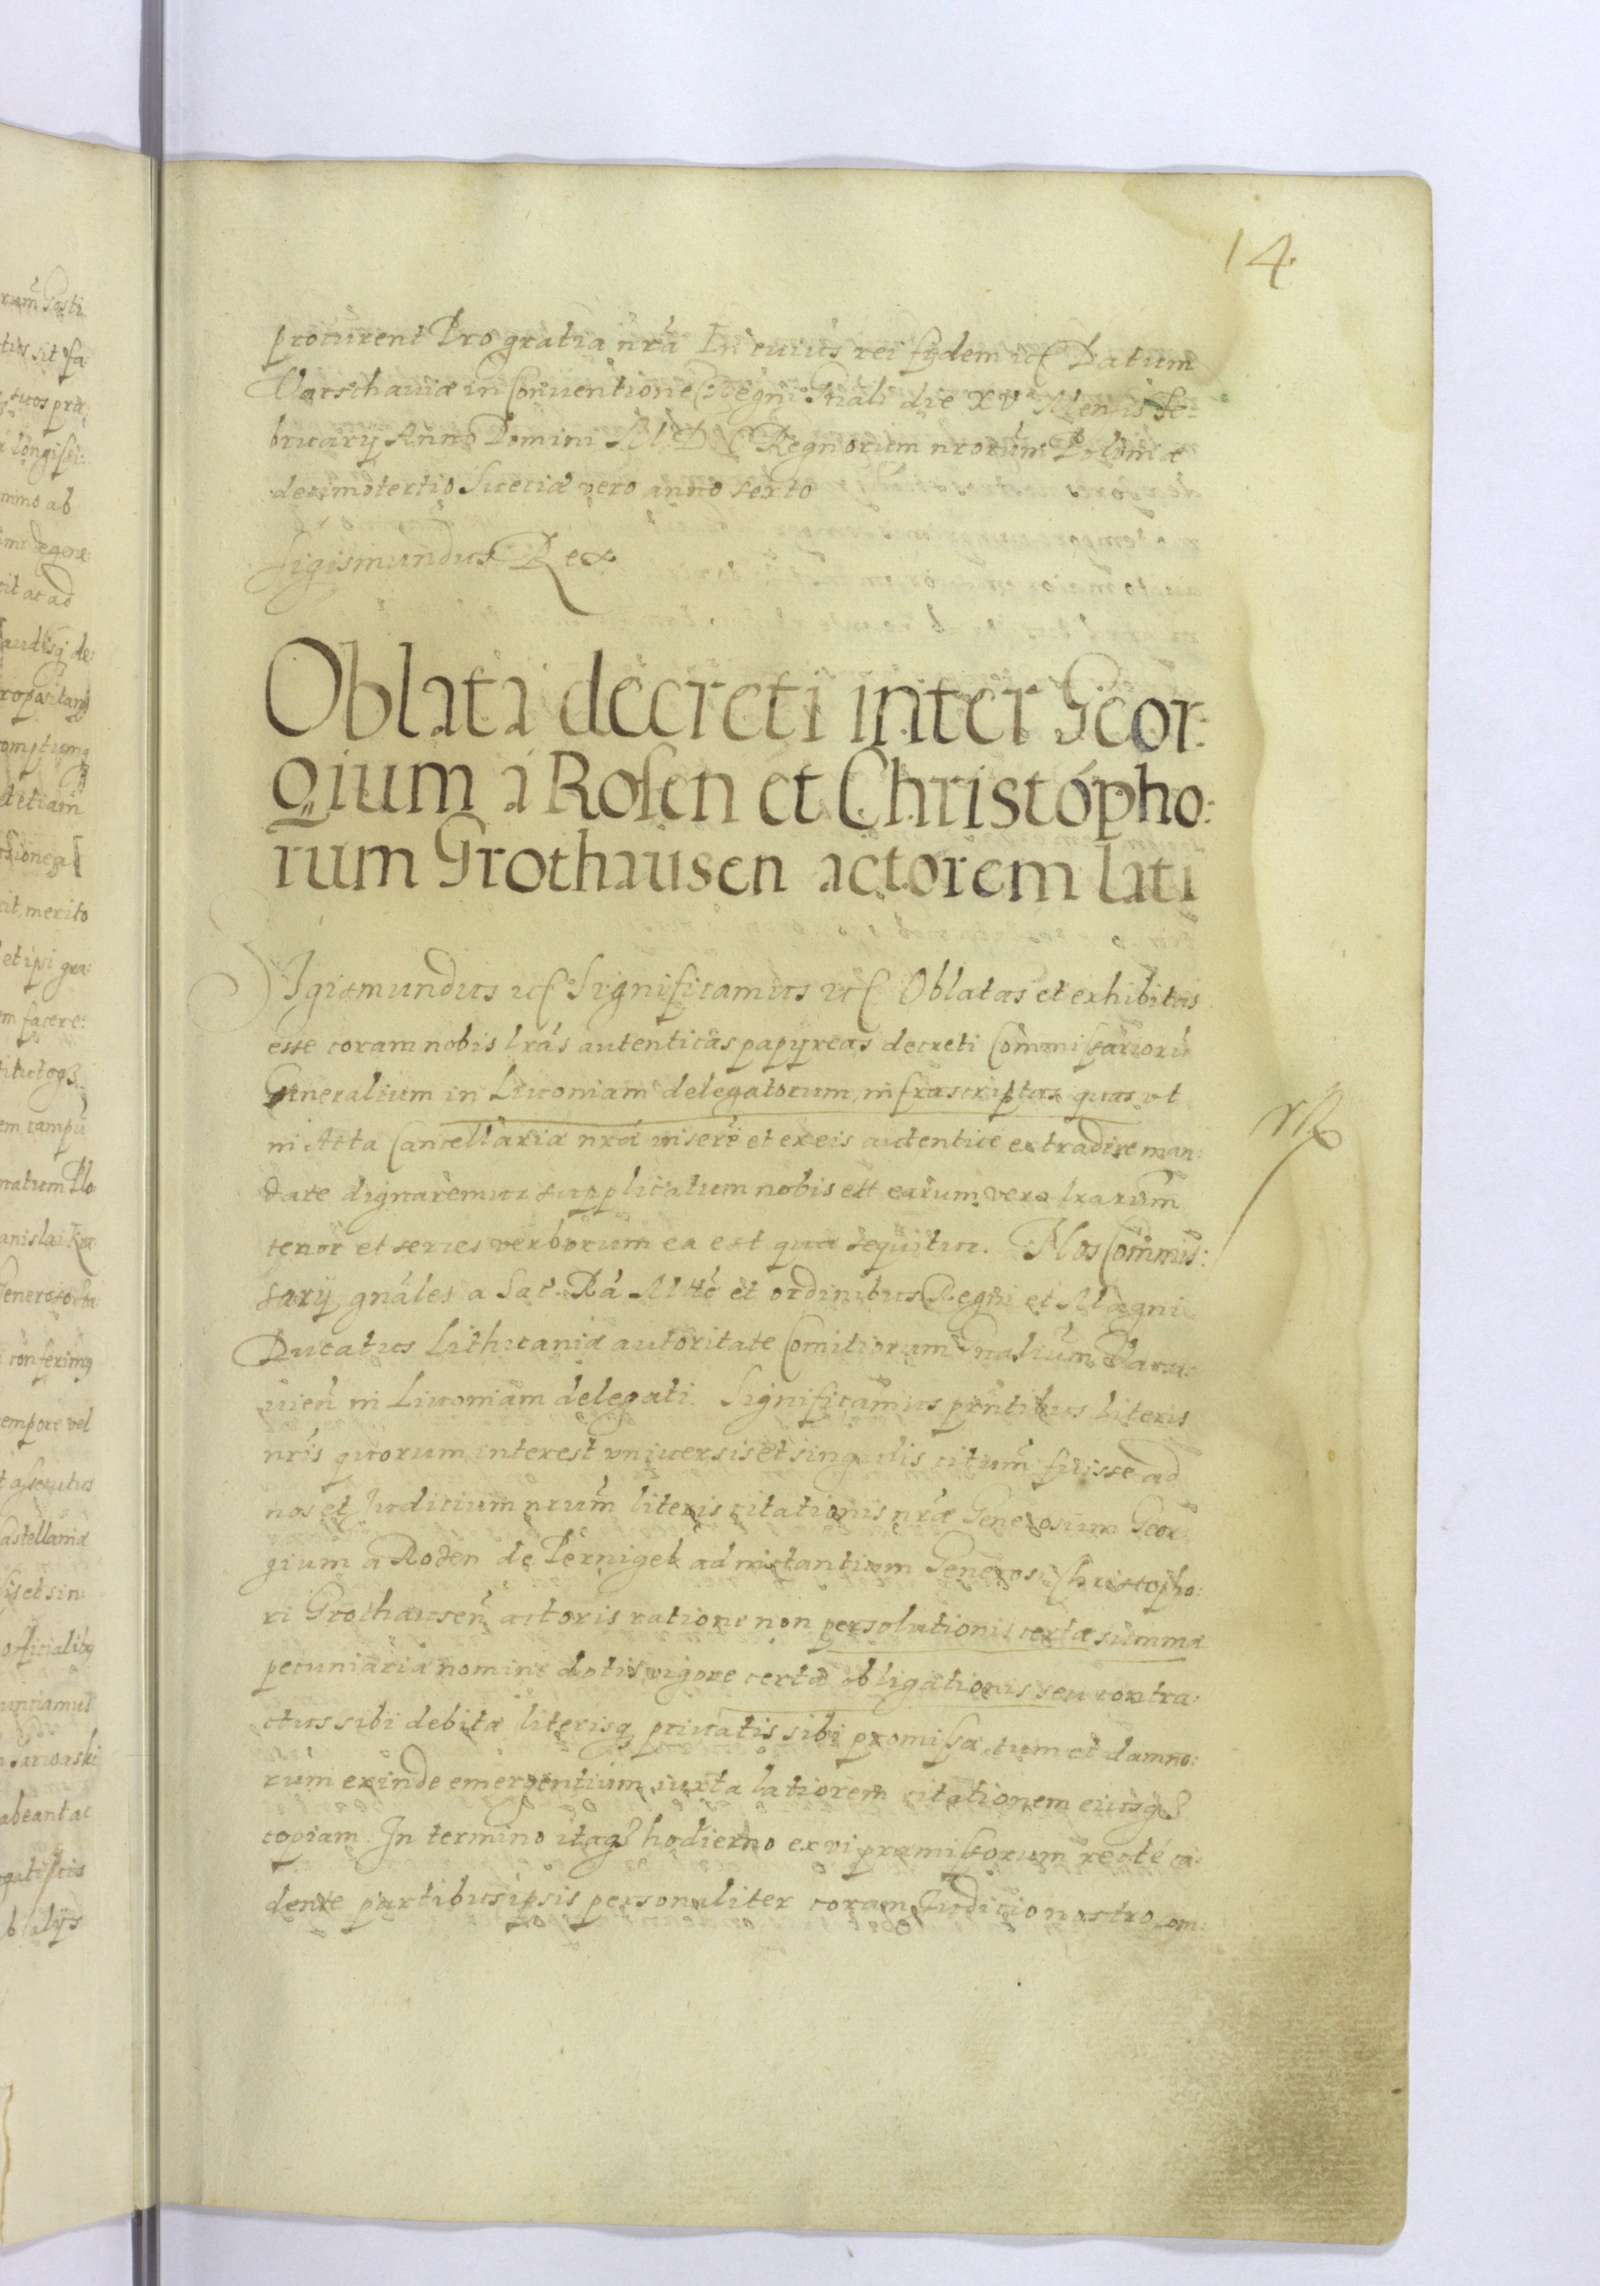 14.
procurent Pro gratia nrã In cuius rei fydem etc Datum
Varschaviæ in Conventione Regni Gñali die XV Mensis Fe-
bruarij Anno Domini M.D.C Regnorum nrorum Poloniæ
decimotertio Sueciæ vero anno sexto
Sigismundus Rex
Oblata decreti inter Geor:
gium a Rosen et Christópho:
rum Grothausen actorem lati
Sigismundus etc Significamus etc Oblatas et exhibitas
esse coram nobis lrãs autenticas papyreas decreti Commissarioru
Generalium in Livoniam delegatorum infrascriptas quas ut
in Acta Cancellariæ nræ inseri et ex eis autentice extradere man:
dare dignaremur supplicatum nobis est earum vero lrarum
tenor et series verborum ea est quæ sequitur. Nos Commis:
sarij gnãles a Sac. Rã Mtte et ordinibus Regni et Magni
Ducatus Lithuaniæ autoritate Comitiorum Gnalium Varsa:
vien in Livoniam delegati. Significamus pñtibus literis
nrĩs quorum interest universis et singulis citum fuisse ad
nos et Judicium nrum literis citationis nræ Generosum Geor:
gium a Rosen de Pernigel ad instantiam Generosi Christopho:
ri Grothausen actoris ratione non persolutionis certæ summæ
pecuniariæ nomine dotis vigore certæ obligationis seu contra:
ctus sibi debitæ literisq privatis sibi promissæ, tum et damno:
rum exinde emergentium iuxta latiorem citationem eiusq
copiam. In termino itaq hodierno ex vi præmissorum recté ca:
dente partibus ipsis personaliter coram Judicio nostro com: